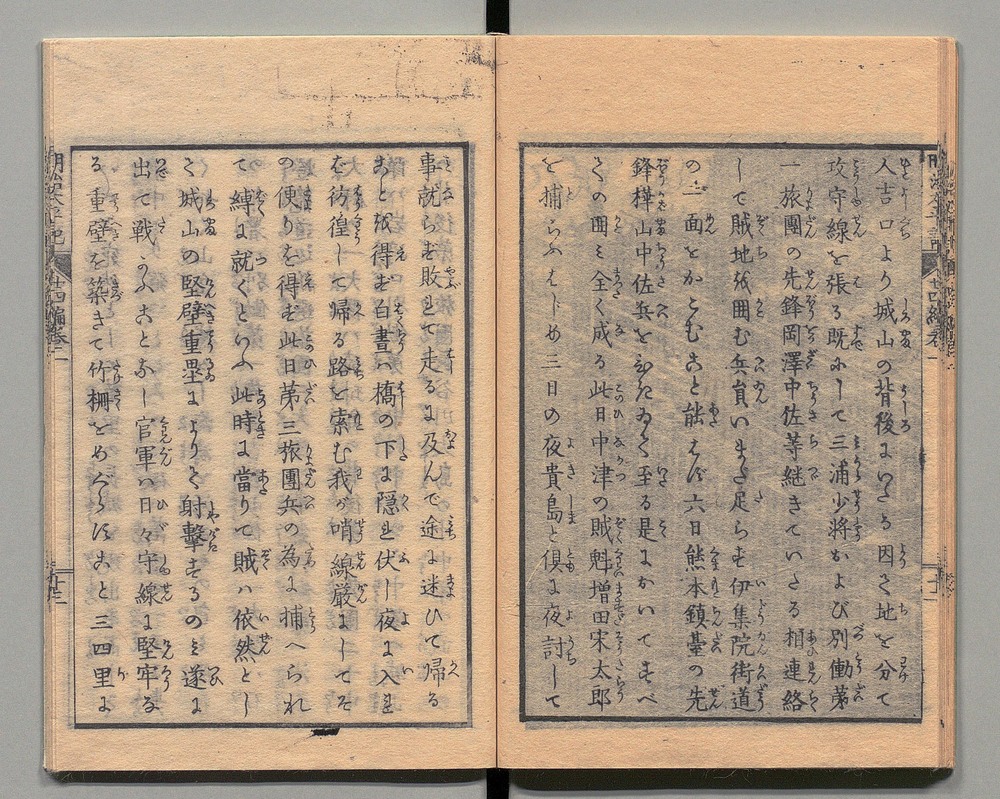 人吉口より城山の背後にいたる因て地を分て
攻守線を張る既にして三浦少将および別働第
一旅團の先鋒岡澤中佐等継きていたる相連絡
して賊地を囲む兵員いまだ足らず伊集院街道
の一面をかこむこと能はず六日熊本鎮臺の先
鋒樺山中佐兵をひきゐて至る是においてすべ
ての囲ミ全く成る此日中津の賊魁増田宋太郎
を捕らふはじめ三日の夜貴島と倶に夜討して
事就らず敗れて走るに及んで途に迷ひて帰る
ことを得ず白晝ハ橋の下に隠れ伏し夜に入れ
を彷徨して帰る路を索む我が哨線厳にしてそ
の便りを得ず此日第三旅團兵の為に捕へられ
て縛に就くといふ此時に當りて賊ハ依然とし
て城山の堅壁重塁によりて射撃するのミ遂に
出て戦かふことなし官軍ハ日々守線を堅牢な
る重壁を築きて竹柵をめぐらすこと三四里に
明治太平記 廿四編巻二 十三